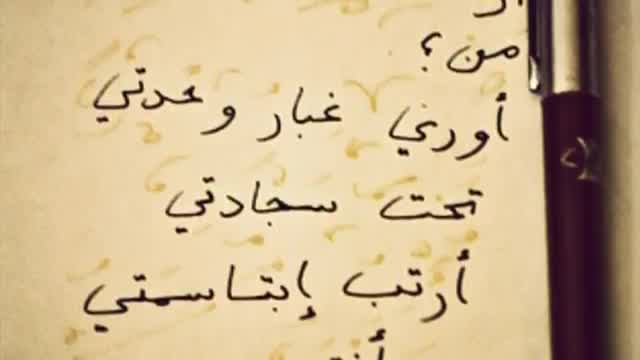 من ؟
أورني غبار وحدتي
تحت سجادتي
أرتب إبتسامتي